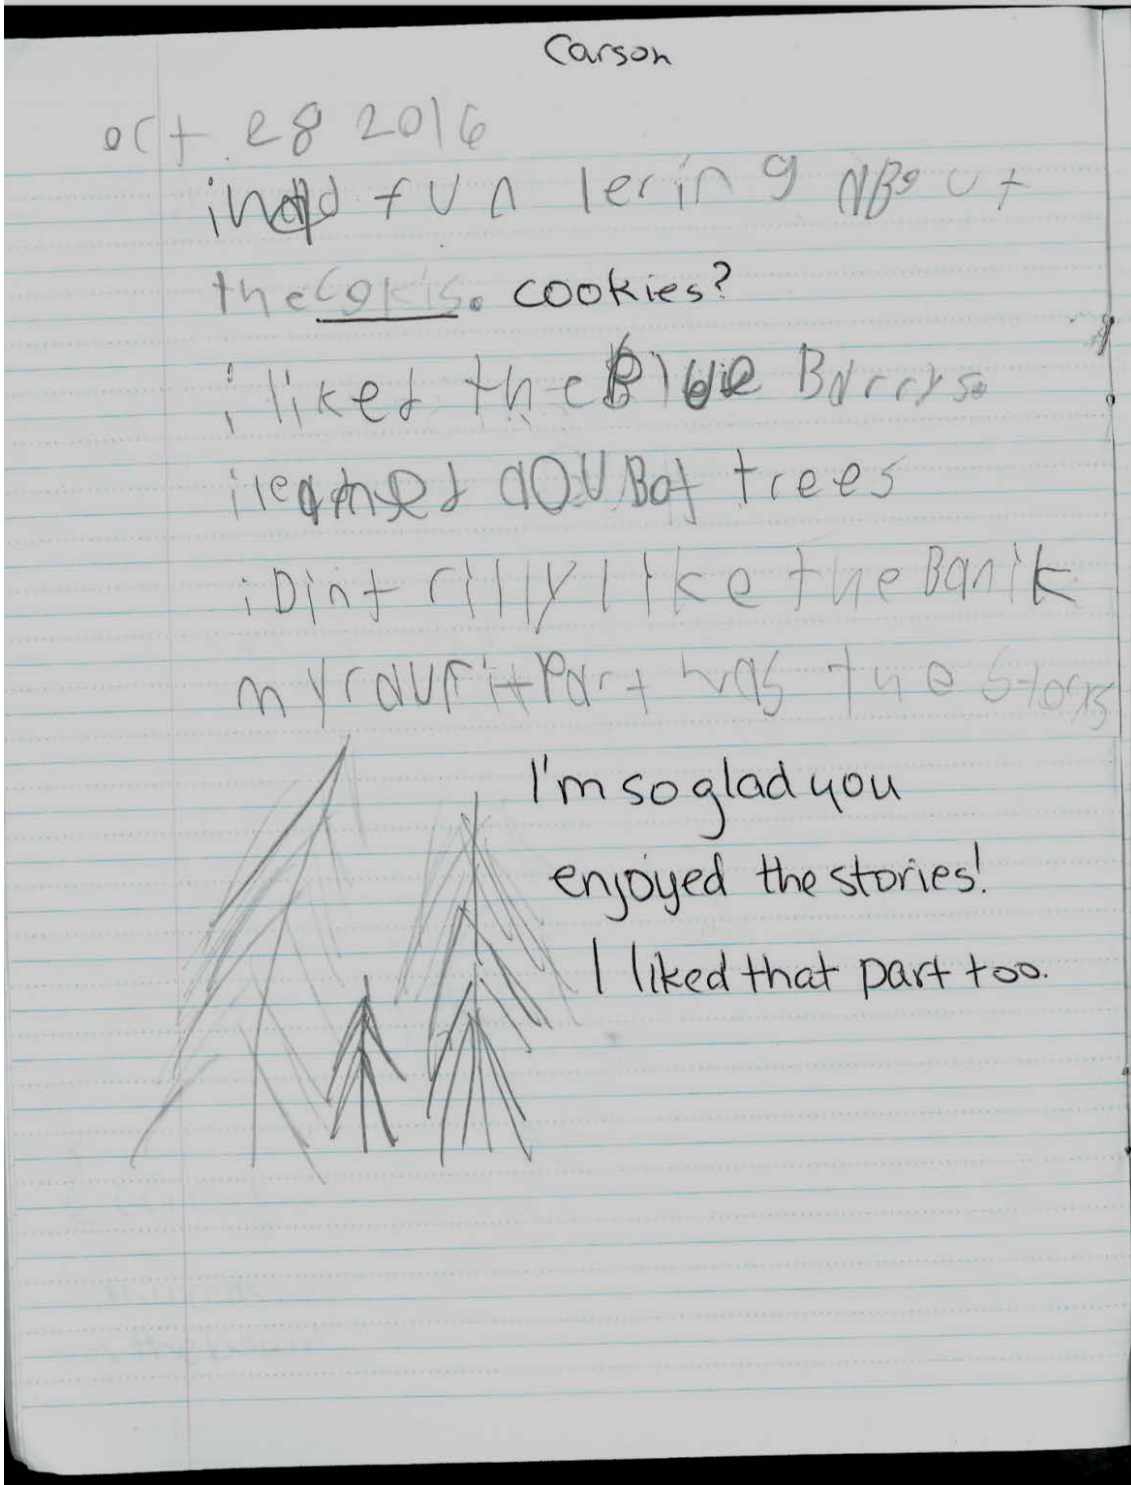 Carson
oct. 28 2016
i had fun lering ABout
the cokis. cookies?
i liked the Blue Barrys.
i learned aouBot trees
i Dint rilly like the Banik
my favrit Part was the storys
I'm so glad you
enjoyed the stories!
I liked that part too.